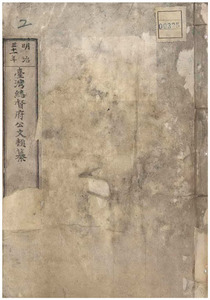 2
明治
三十一年
臺灣總督府公文類纂